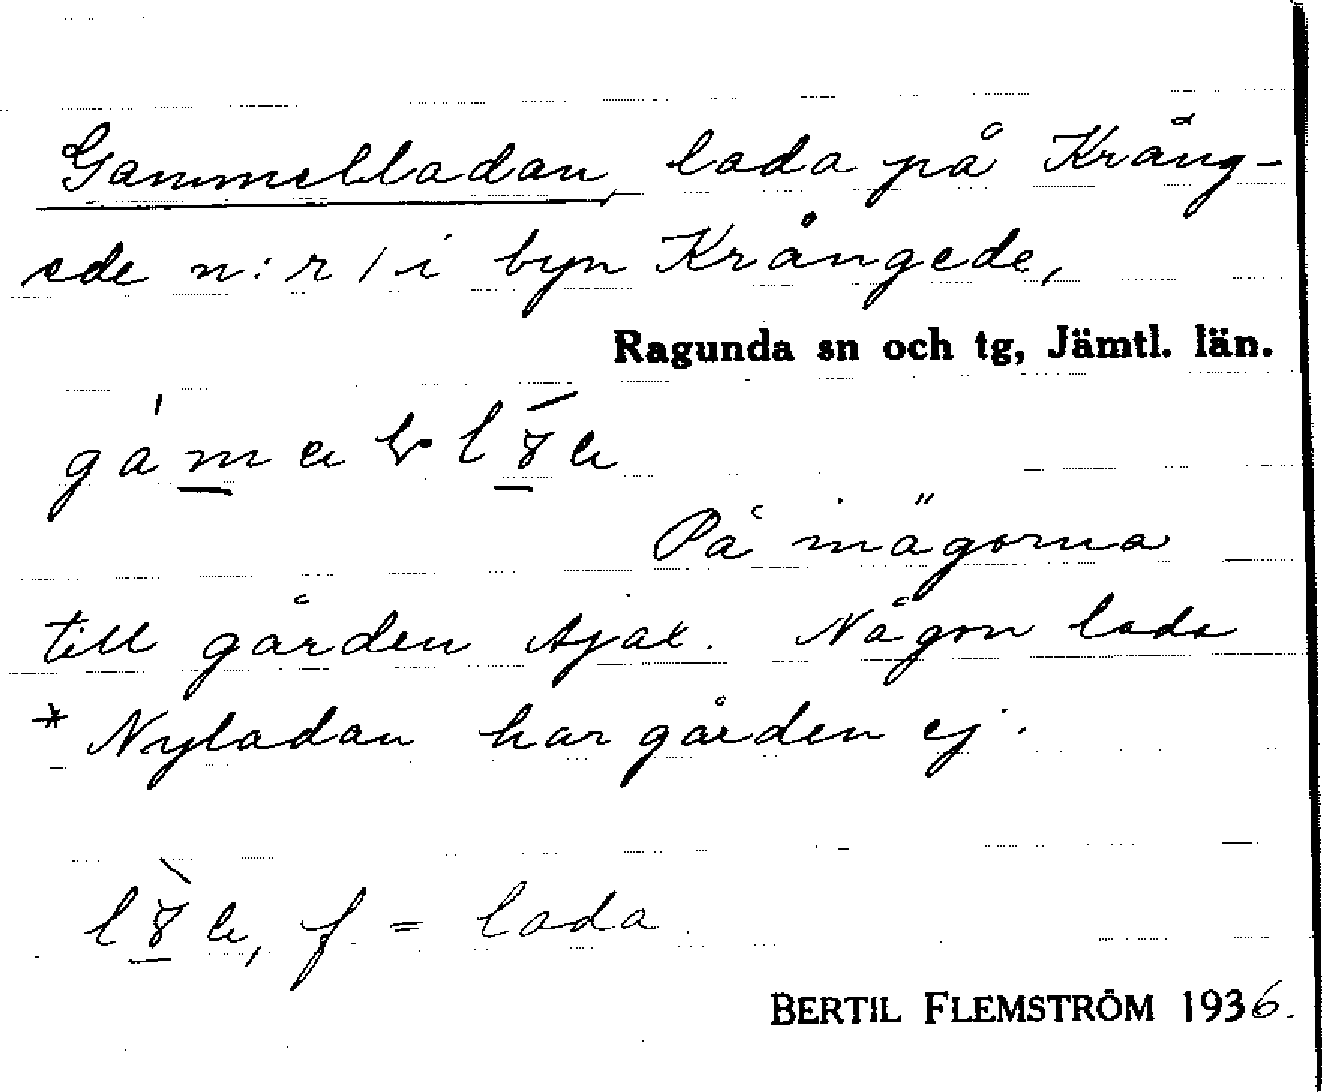 Gammelladan, lada på Kräng-
ede n:r 1 i byn Krångede,
Ragunda sn och tg, Jämtl. län.
På inägorna
till gården Ajax. Någon lada
* Nyladan har gården ej.
f = lada
BERTIL FLEMSTRÖM 1936.